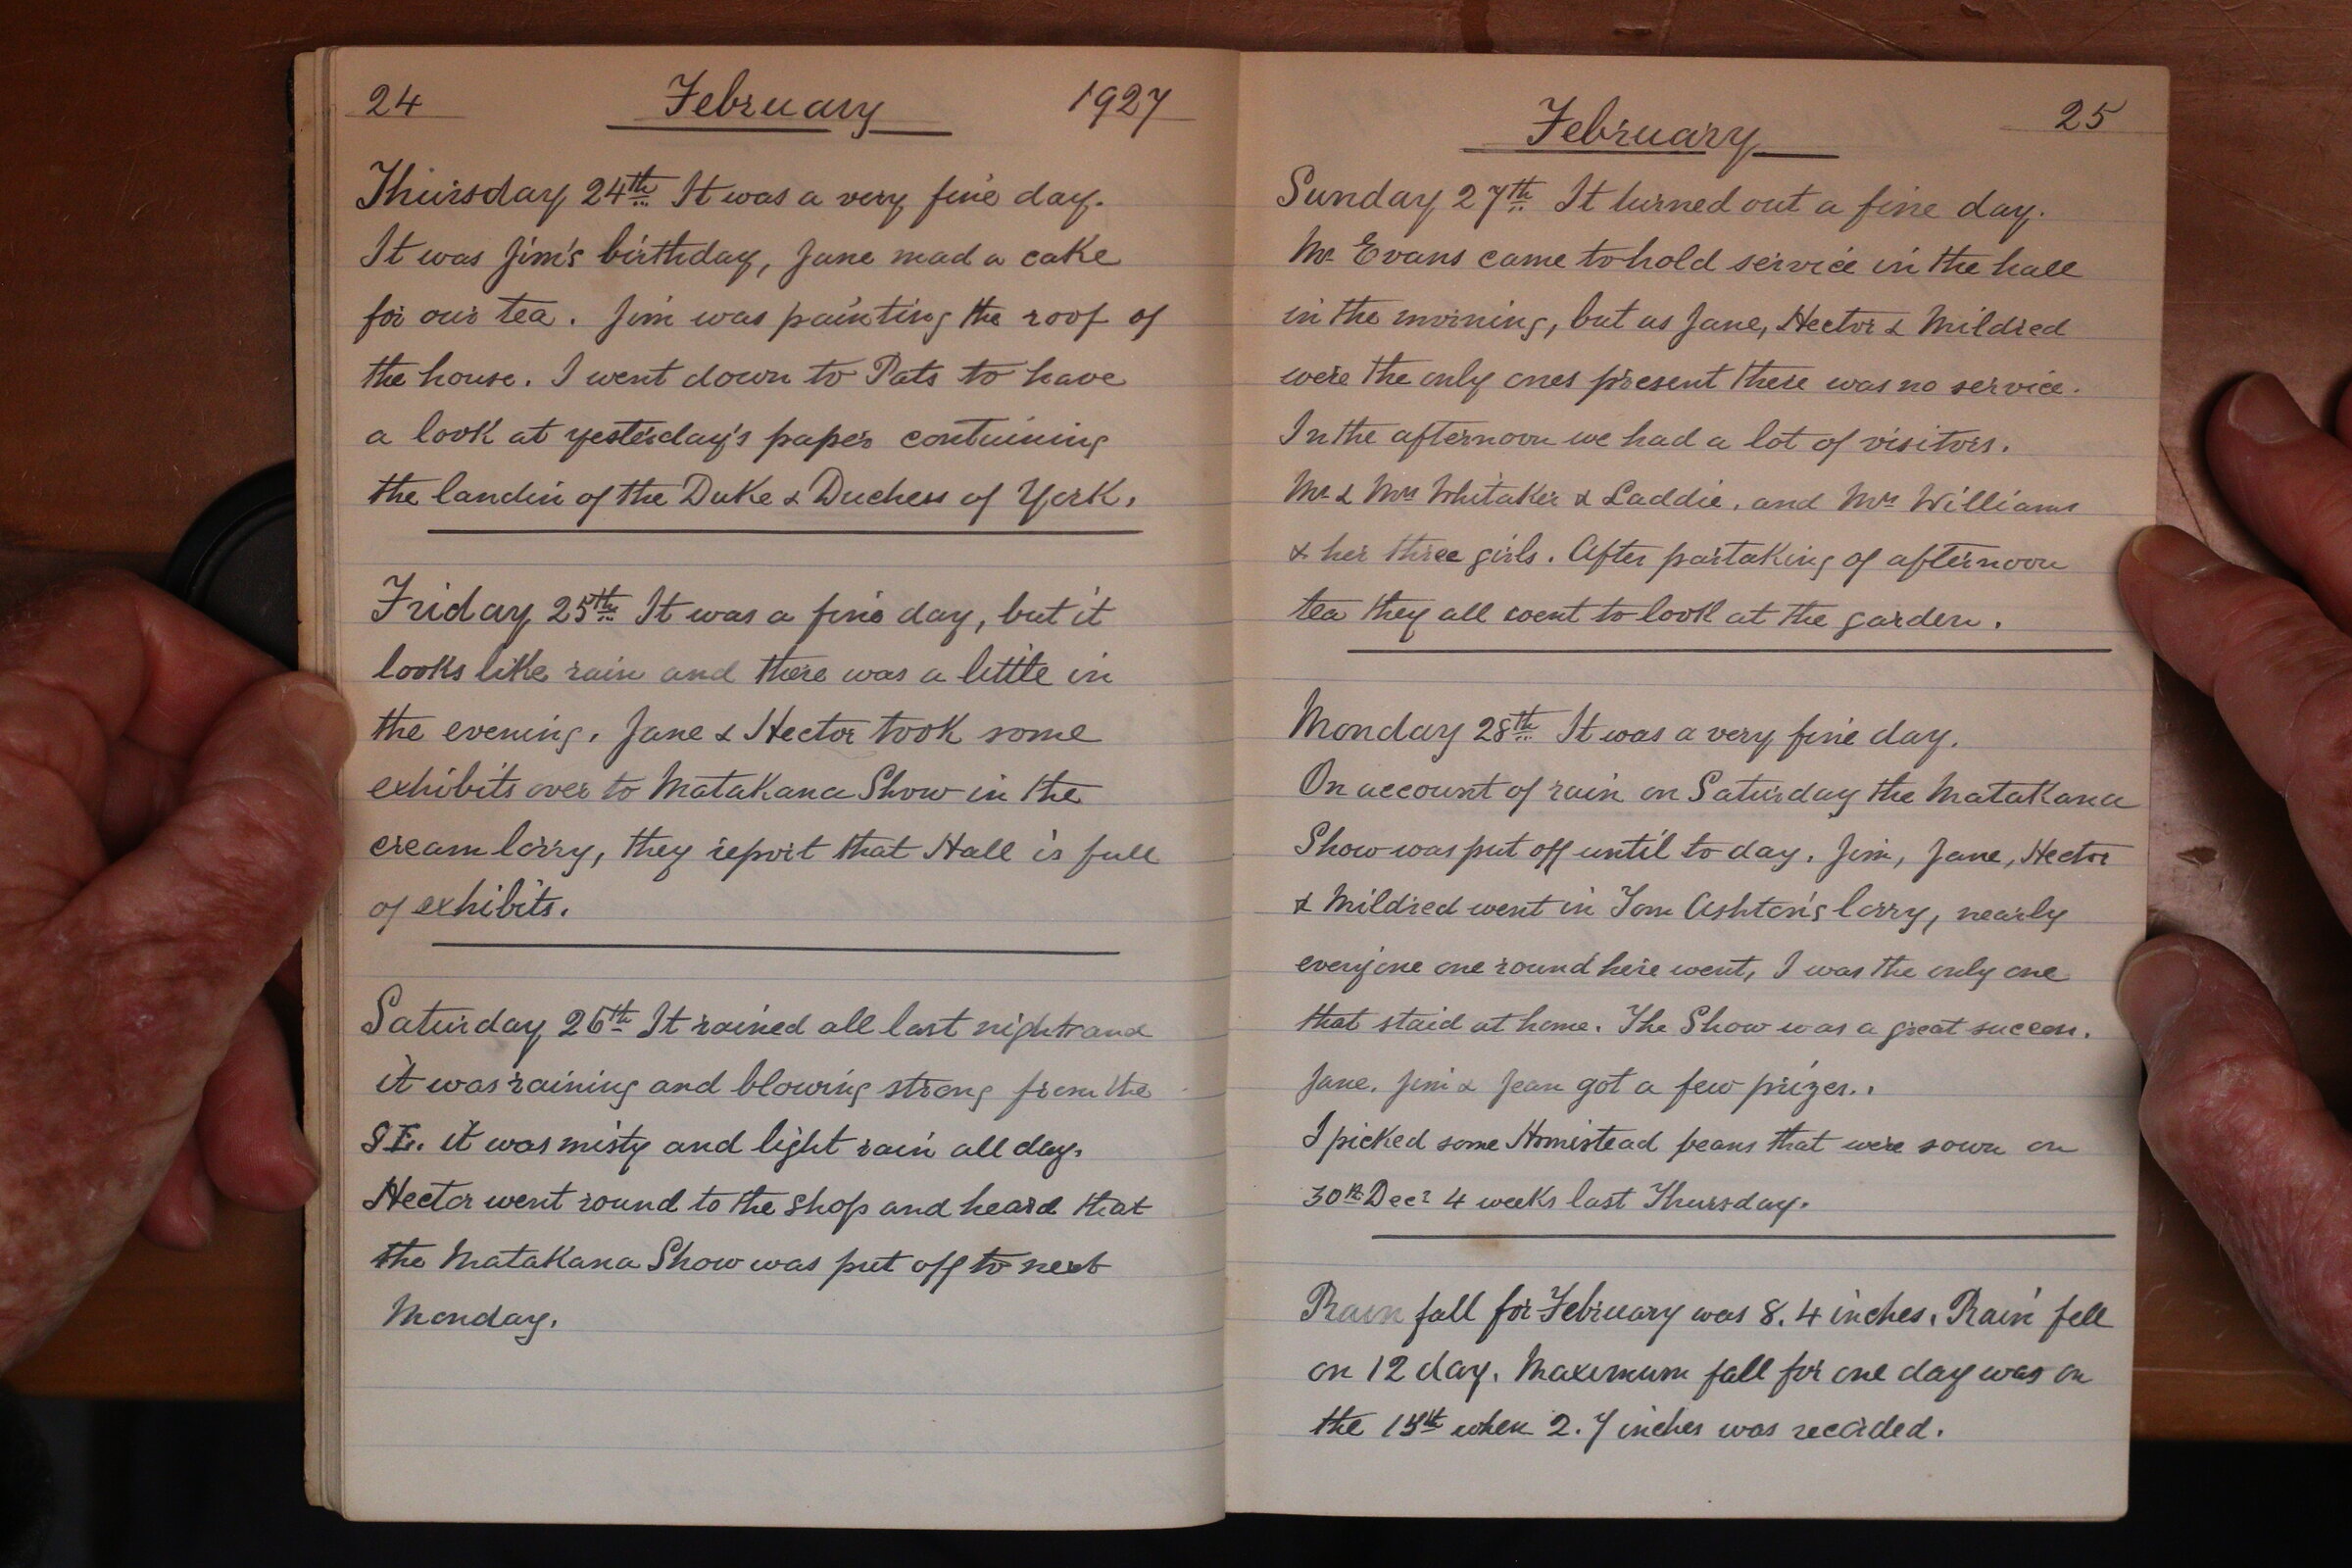 24 February 1927
Thursday 24th It was a very fine day.
It was Jim's birthday, Jane mad a cake
for our tea. Jim was painting the roof of
the house. I went down to Pats to have
a look at yesterday's paper containing
the landin of the Duke & Duchess of York.
Friday 25th It was a fine day, but it
looks like rain and there was a little in
the evening. Jane & Hector took some
exhibits over to Matakana Show in the
cream lorry, they report that Hall is full
of exhibits.
Saturday 26th It rained all last night and
it was raining and blowing strong from the
SE. it was misty and light rain all day.
Hector went round to the shop and heard that
the Matakana Show was put off to next
Monday.
February 25
Sunday 27th It turned out a fine day.
Mr Evans came to hold service in the hall
in the morning, but as Jane, Hector & Mildred
were the only ones present there was no service.
In the afternoon we had a lot of visitors.
Mr & Mrs Whitaker & Laddie, and Mrs Williams
& her three girls. After partaking of afternoon
tea they all went to look at the garden.
Monday 28th It was a very fine day.
On account of rain on Saturday the Matakana
Show was put off until to day. Jim, Jane, Hector
& Mildred went in Tom Ashton's lorry, nearly
everyone one round here went, I was the only one
that staid at home. The Show was a great success.
Jane, Jim & Jean got a few prizes..
I picked some Homistead peans that were sown on
30th Decr 4 weeks last Thursday.
Rain fall for February was 8.4 inches. Rain fell
on 12 day. Maxemum fall for one day was on
the when 2.7 inches was recorded.